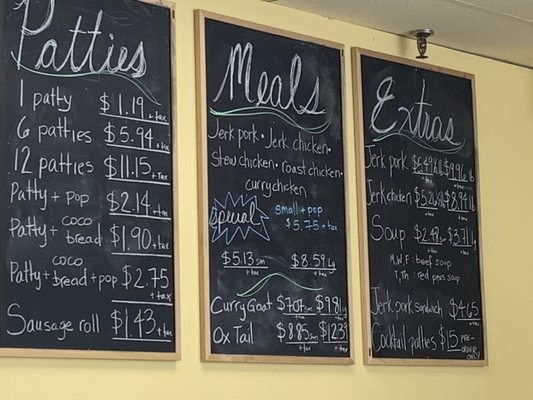 Patties
1 patty $1.19 +tax
6 patties $5.94 +tax
12 patties $11.15 +tax
Patty + pop $2.14 +tax
Patty + coco bread $1.90 +tax
Patty + coco bread + pop $2.75 +tax
Sausage roll $1.43 +tax
Meals
Jerk pork • Jerk chicken •
Stew chicken • roast chicken •
curry chicken
Special small + pop
$5.75 + tax
$5.13 sm +tax $8.59 Lg +tax
Curry Goat $7.07 sm +tax $9.81 Lg +tax
Ox Tail $8.85 sm +tax $12.39 +tax
Extras
Jerk pork +tax $9.96 lb +tax
Jerk chicken +tax $8.94 lb +tax
Soup $2.48 sm +tax $3.71 Lg +tax
M.W.F : beef soup
T,Th : red peas soup
Jerk pork sandwich $4.65 +tax
Cocktail patties $15 +tax PRE-ORDER ONLY